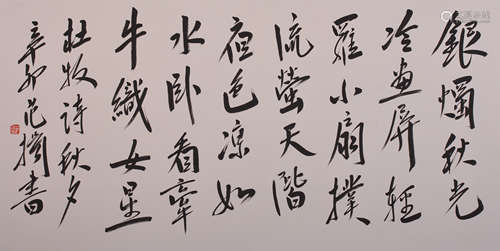 銀燭秋光
冷畫屏輕
羅小扇撲
流螢天階
夜色涼如
水卧看牽
牛織女星
杜牧詩秋夕
辛卯范摛書